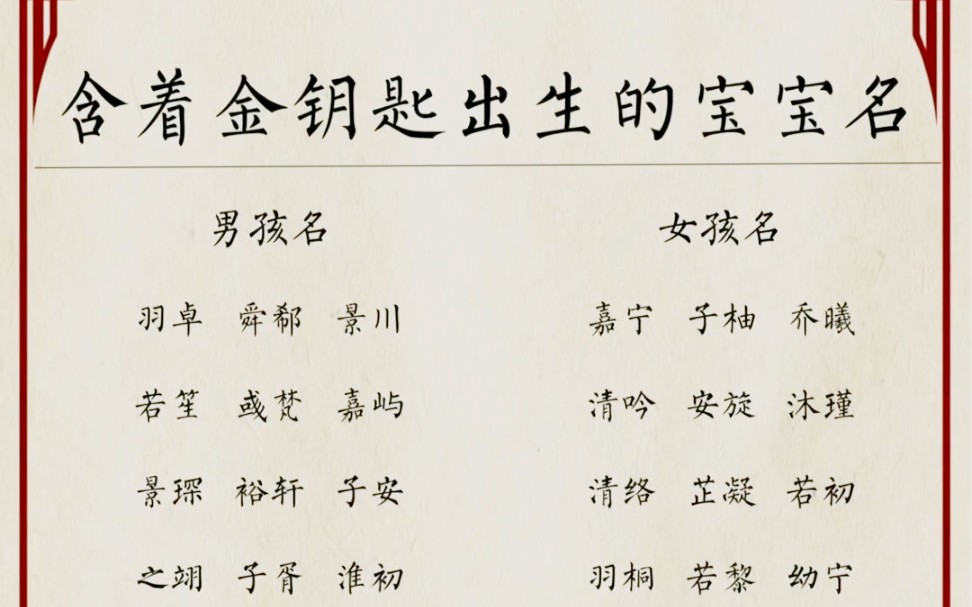 含着金钥匙出生的宝宝名
男孩名 女孩名
羽卓 舜郗 景川 嘉宁 子柚 乔曦
若笙 彧梵 嘉屿 清吟 安旋 沐瑾
景琛 裕轩 子安 清络 芷凝 若初
之翊 子胥 淮初 羽桐 若黎 幼宁